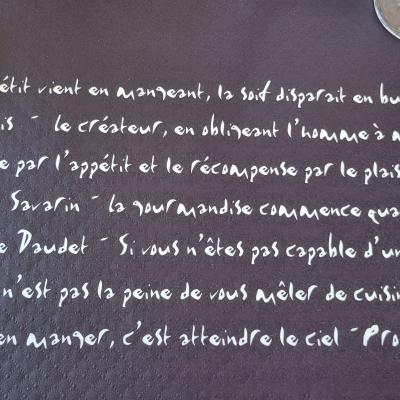 étit vient en mangeant, la soif disparait en bu
is - le créateur, en obligeant l'homme à m
e par l'appétit et le récompense par le plais
Savarin - la gourmandise commence qua
e Daudet - Si vous n'êtes pas capable d'un
n'est pas la peine de vous mêler de cuisin
en manger, c'est atteindre le ciel - Pro